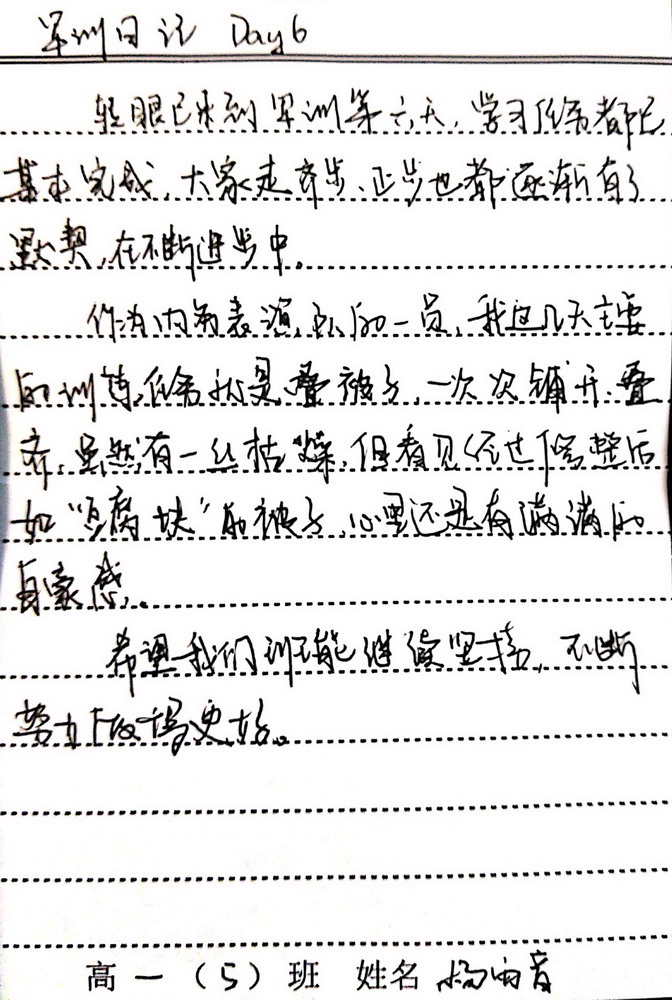 军训日记 Day6
转眼已来到军训第六天，学习任务都已
基本完成，大家走齐步、正步也都逐渐有了
默契，在不断进步中。
作为内务表演队的一员，我这几天主要
的训练任务就是叠被子，一次次铺开、叠
齐，虽然有一丝枯燥，但看见经过修整后
如“豆腐块”的被子，心里还是有满满的
自豪感。
希望我们都能继续坚持，不断
努力做得更好。
高一（5）班 姓名 杨雨